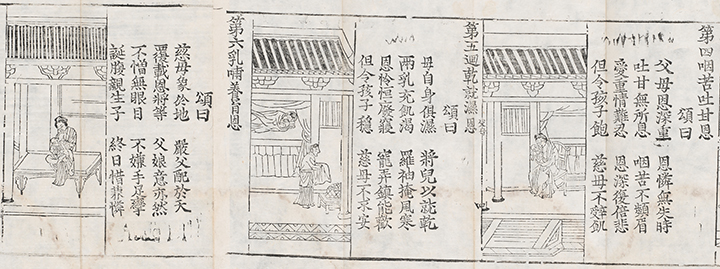 第四咽苦吐甘恩
頌曰
父母恩深重 恩憐無失時
吐甘無所恩 咽苦不顰眉
愛重情難忍 恩深復倍悲
但令孩子飽 慈母不辭飢
第五迴乾就濕恩
頌曰
母自身俱濕 將兒以就乾
兩乳充飢渴 羅袖掩風寒
恩怜恒廢寢 寵弄鎮能歡
但令孩子穩 慈母不求安
第六乳哺養育恩
頌曰
慈母象於地 嚴父配於天
覆載恩將等 父娘意亦然
不憎無眼目 不嫌手足攣
誕腹親生子 終日惜兼憐